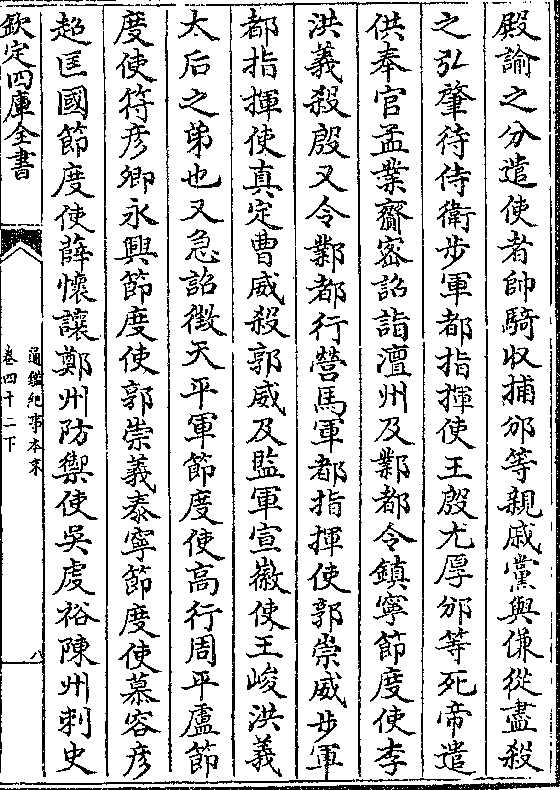 殿諭之分遣使者帥騎収捕邠等親戚黨與傔從盡殺
之弘肇待侍衛步軍都指揮使王殷尤厚邠等死帝遣
供奉官孟業齎密詔詣澶州及鄴都令鎮寧節度使李
洪義殺殷又令鄴都行營馬軍都指揮使郭崇威步軍
都指揮使真定曹威殺郭威及監軍宣徽使王峻洪義
太后之弟也又急詔徴天平軍節度使高行周平盧節
度使符彦卿永興節度使郭崇義泰寧節度使慕容彦
超匡國節度使薛懷讓鄭州防禦使吳虔裕陳州刺史
欽定四庫全書
通鑑紀事本末
卷四十二下
八